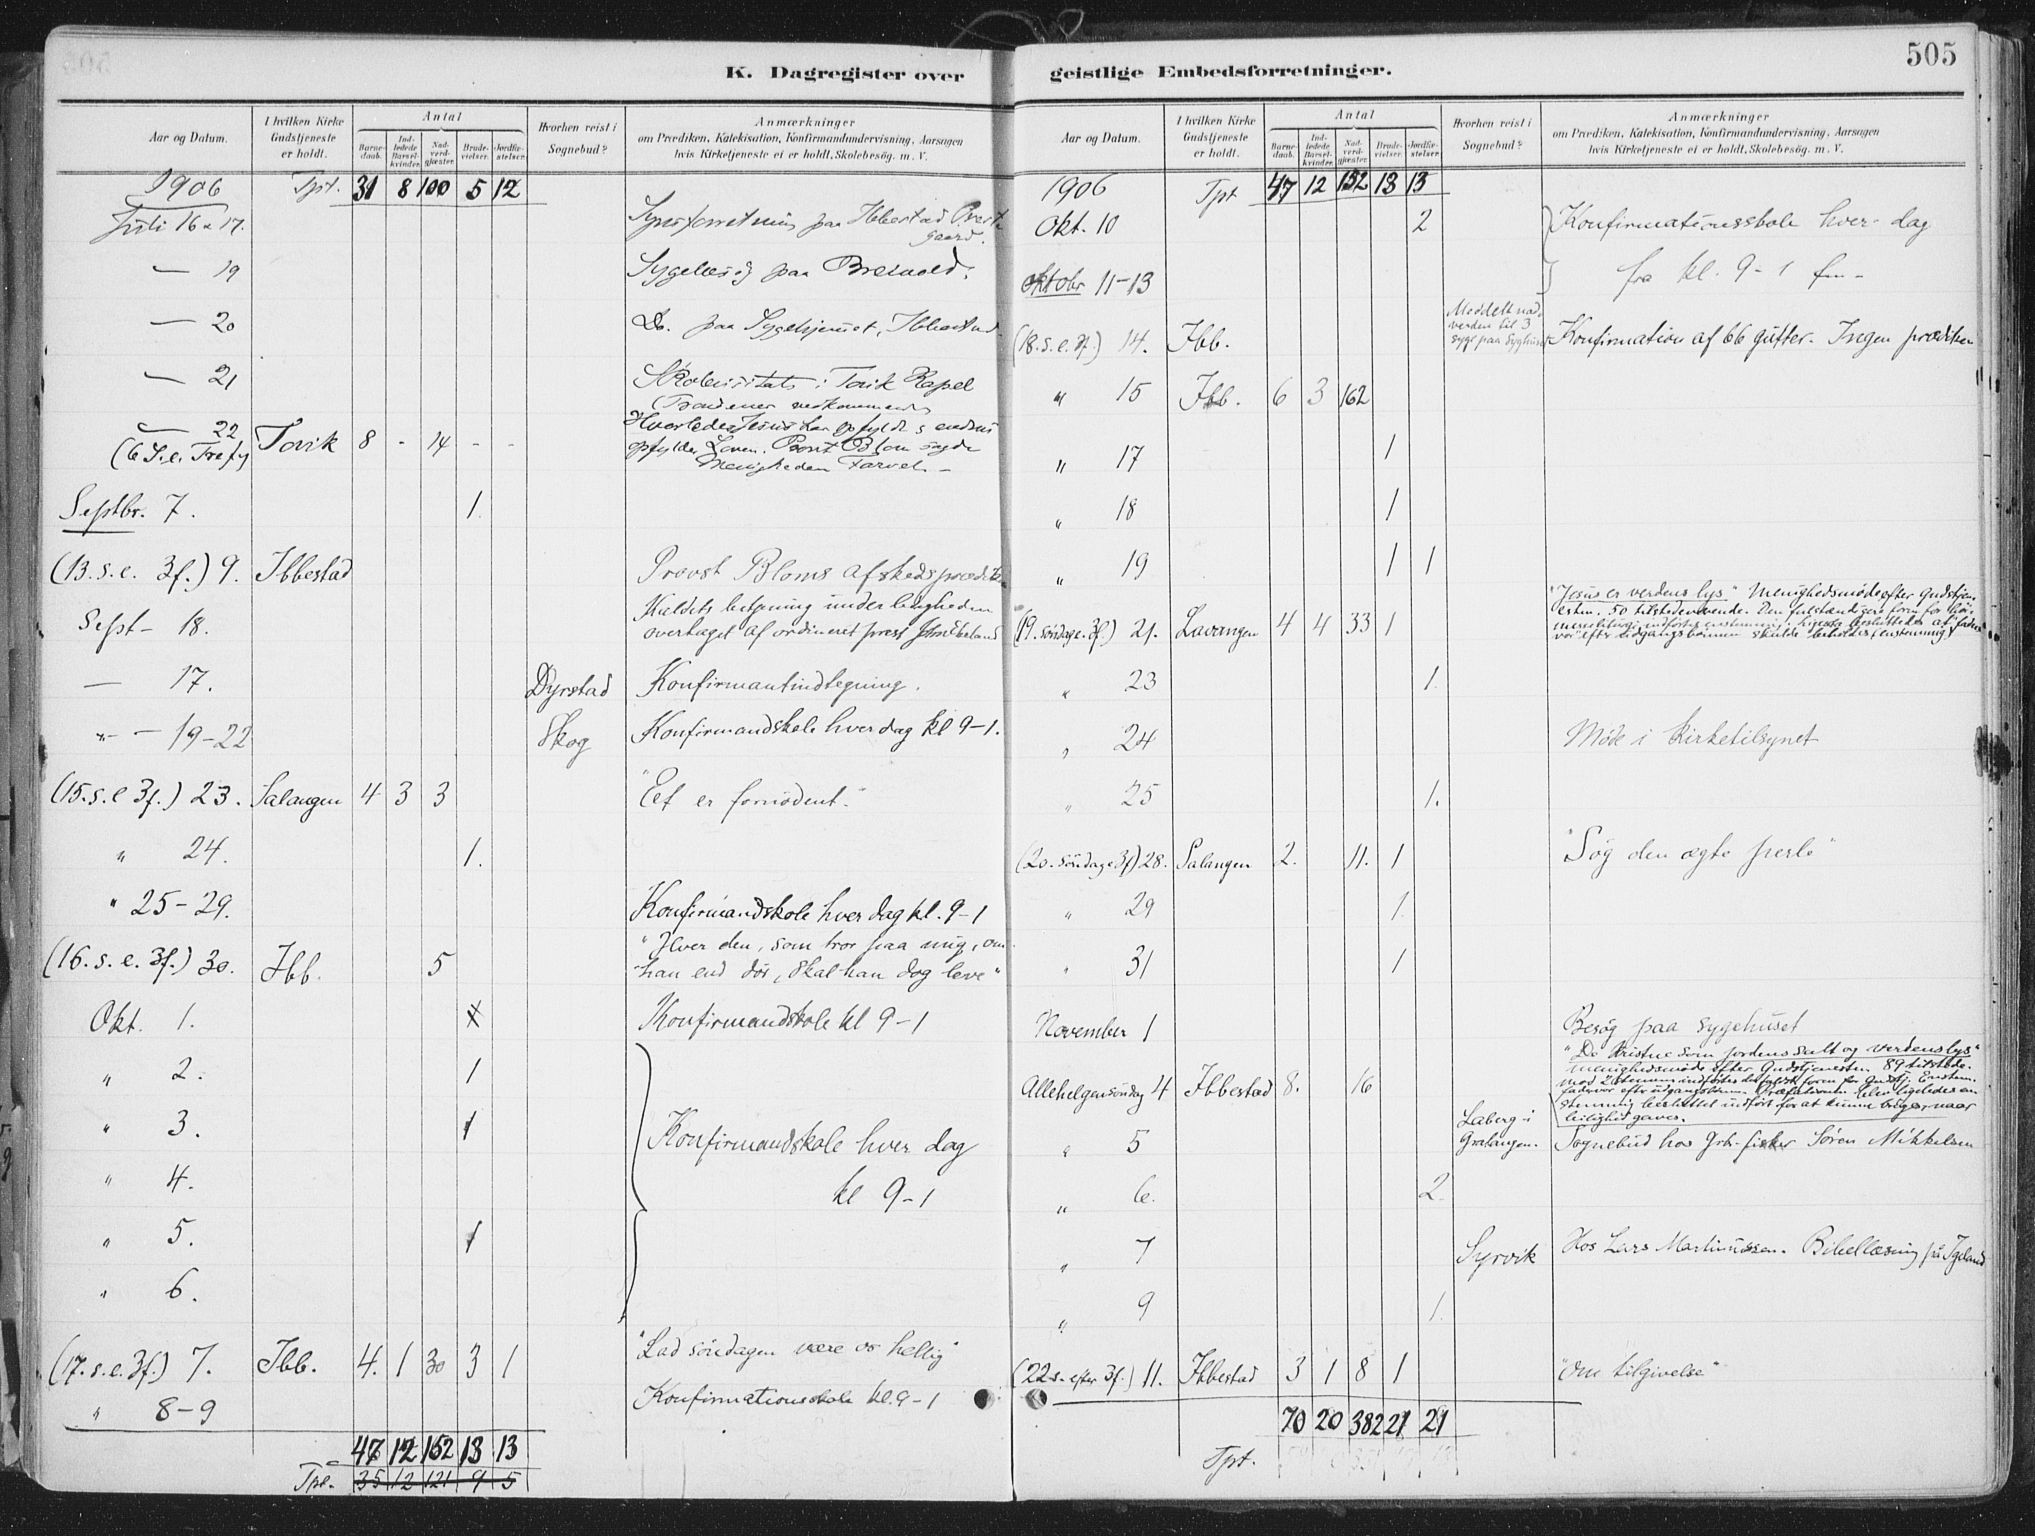 K. Dagregister over
Aar og Datum.
I hvilken Kirke Gudstjeneste er holdt.
Antal
Barnedaab.
Indledede Barselkvinder.
Nadverdgjæster.
Brudevielser.
Jordfæstelser.
Hvorhen reist i Sognebud?
Anmærkninger
om Prædiken, Katekisation, Konfirmandundervisning, Aarsagen
hvis Kirketjeneste ei er holdt, Skolebesøg. m. V.
1906 Tpt. 31 8 100 5 12
Juli 16 & 17. paa Ibbestad Prest
gaard.
— 19 Sygebesøg paa
— 20 Do. paa Sygehjemmet, Ibbestad
— 21 Skolevisitats i Tovik Kapel
(Trondenes vedkommende
— 22 Hvorledes Jesus har opfyldt &
(6 S. e. Tref) Tovik 8 - 14 - - opfylder Loven. Provst Blom sagde
Menigheden Farvel. –
Septbr. 7. 1.
(13. s. e. 3f.) 9. Ibbestad Provst Bloms afskedsprædiken
Kaldets betjening under ledigheden
Sept – 18. overtaget af ordineret prest
— 17. Dyrstad Konfirmantindtegning.
" – – 19-22 Skog Konfirmandskole hver dag kl 9-1.
(15. s. e 3f.) 23. Salangen 4 3 3 "Eet er fornødent."
" 24. 1.
" 25-29. Konfirmandskole hver dag kl. 9-1
"Hver den, som tror paa mig, om
(16. s. e. 3f.) 30. Ibb. 5 han end dør, skal han dog leve"
Okt. 1. Konfirmandskole kl 9-1
" 2. 1
" 3. 1 Konfirmandskole hver dag
" 4. kl 9-1
" 5. 1
" 6.
(17. s. e. 3f.) 7. Ibb. 4. 1 30 3 1 "Lad søndagen være os hellig"
" 8-9 Konfirmationsskole kl. 9-1
47 12 152 13 13
Tpt. 35 12 121 9 5
505
geistlige Embedsforretninger.
Aar og Datum.
I hvilken Kirke Gudstjeneste er holdt.
Antal
Barnedaab.
Indledede Barselkvinder.
Nadverdgjæster.
Brudevielser.
Jordfæstelser.
Hvorhen reist i Sognebud?
Anmærkninger
om Prædiken, Katekisation, Konfirmandundervisning, Aarsagen
hvis Kirketjeneste ei er holdt, Skolebesög. m. V.
1906 Tpt 47 12 152 13 13
Okt. 10 2 Konfirmationsskole hver dag
Oktobr 11-13 fra kl. 9-1 fm –
Meddelt nad-
verden til 3
syge paa Sygehuset
(18. s. e. 3f.) 14. Ibb. Konfirmation af 66 gutter. Ingen prædiken
" 15 Ibb. 6 3 162
" 17 1
" 18 1
" 19 1 1
"Jesus er verdens lys" Menighedsmøde efter gudstjen-
esten. 50 tilstedeværende. Den fuldstændigere form for høi-
(19. søndag e. 3f.) 21. Lavangen 4 4 33 1
" 23 1.
" 24 Møde i Kirketilsynet
" 25 1.
(20. søndag e 3f) 28. Salangen 2. 11. 1 "Søg den ægte perle"
" 29 1.
" 31 1
November 1 Besøg paa sygehuset
"De kristne som jordens salt og verdens lys"
menighedsmøde efter Gudstjenesten. 89 tilstede.
Allehelgensöndag 4 Ibbestad 8. 16
leilighed gaves.
Laberg i
Gratangen.
" 5 Sognebud hos Grb. fisker Søren Mikkelsen
" 6. 2.
" 7 Syrvik Hos Lars Martinussen. Bibellæsning på Igeland
" 9 1.
(22 s. efter 3f.) 11. Ibbestad 3 1 8 1 "Om tilgivelse"
70 20 382 21 21
Tpt.